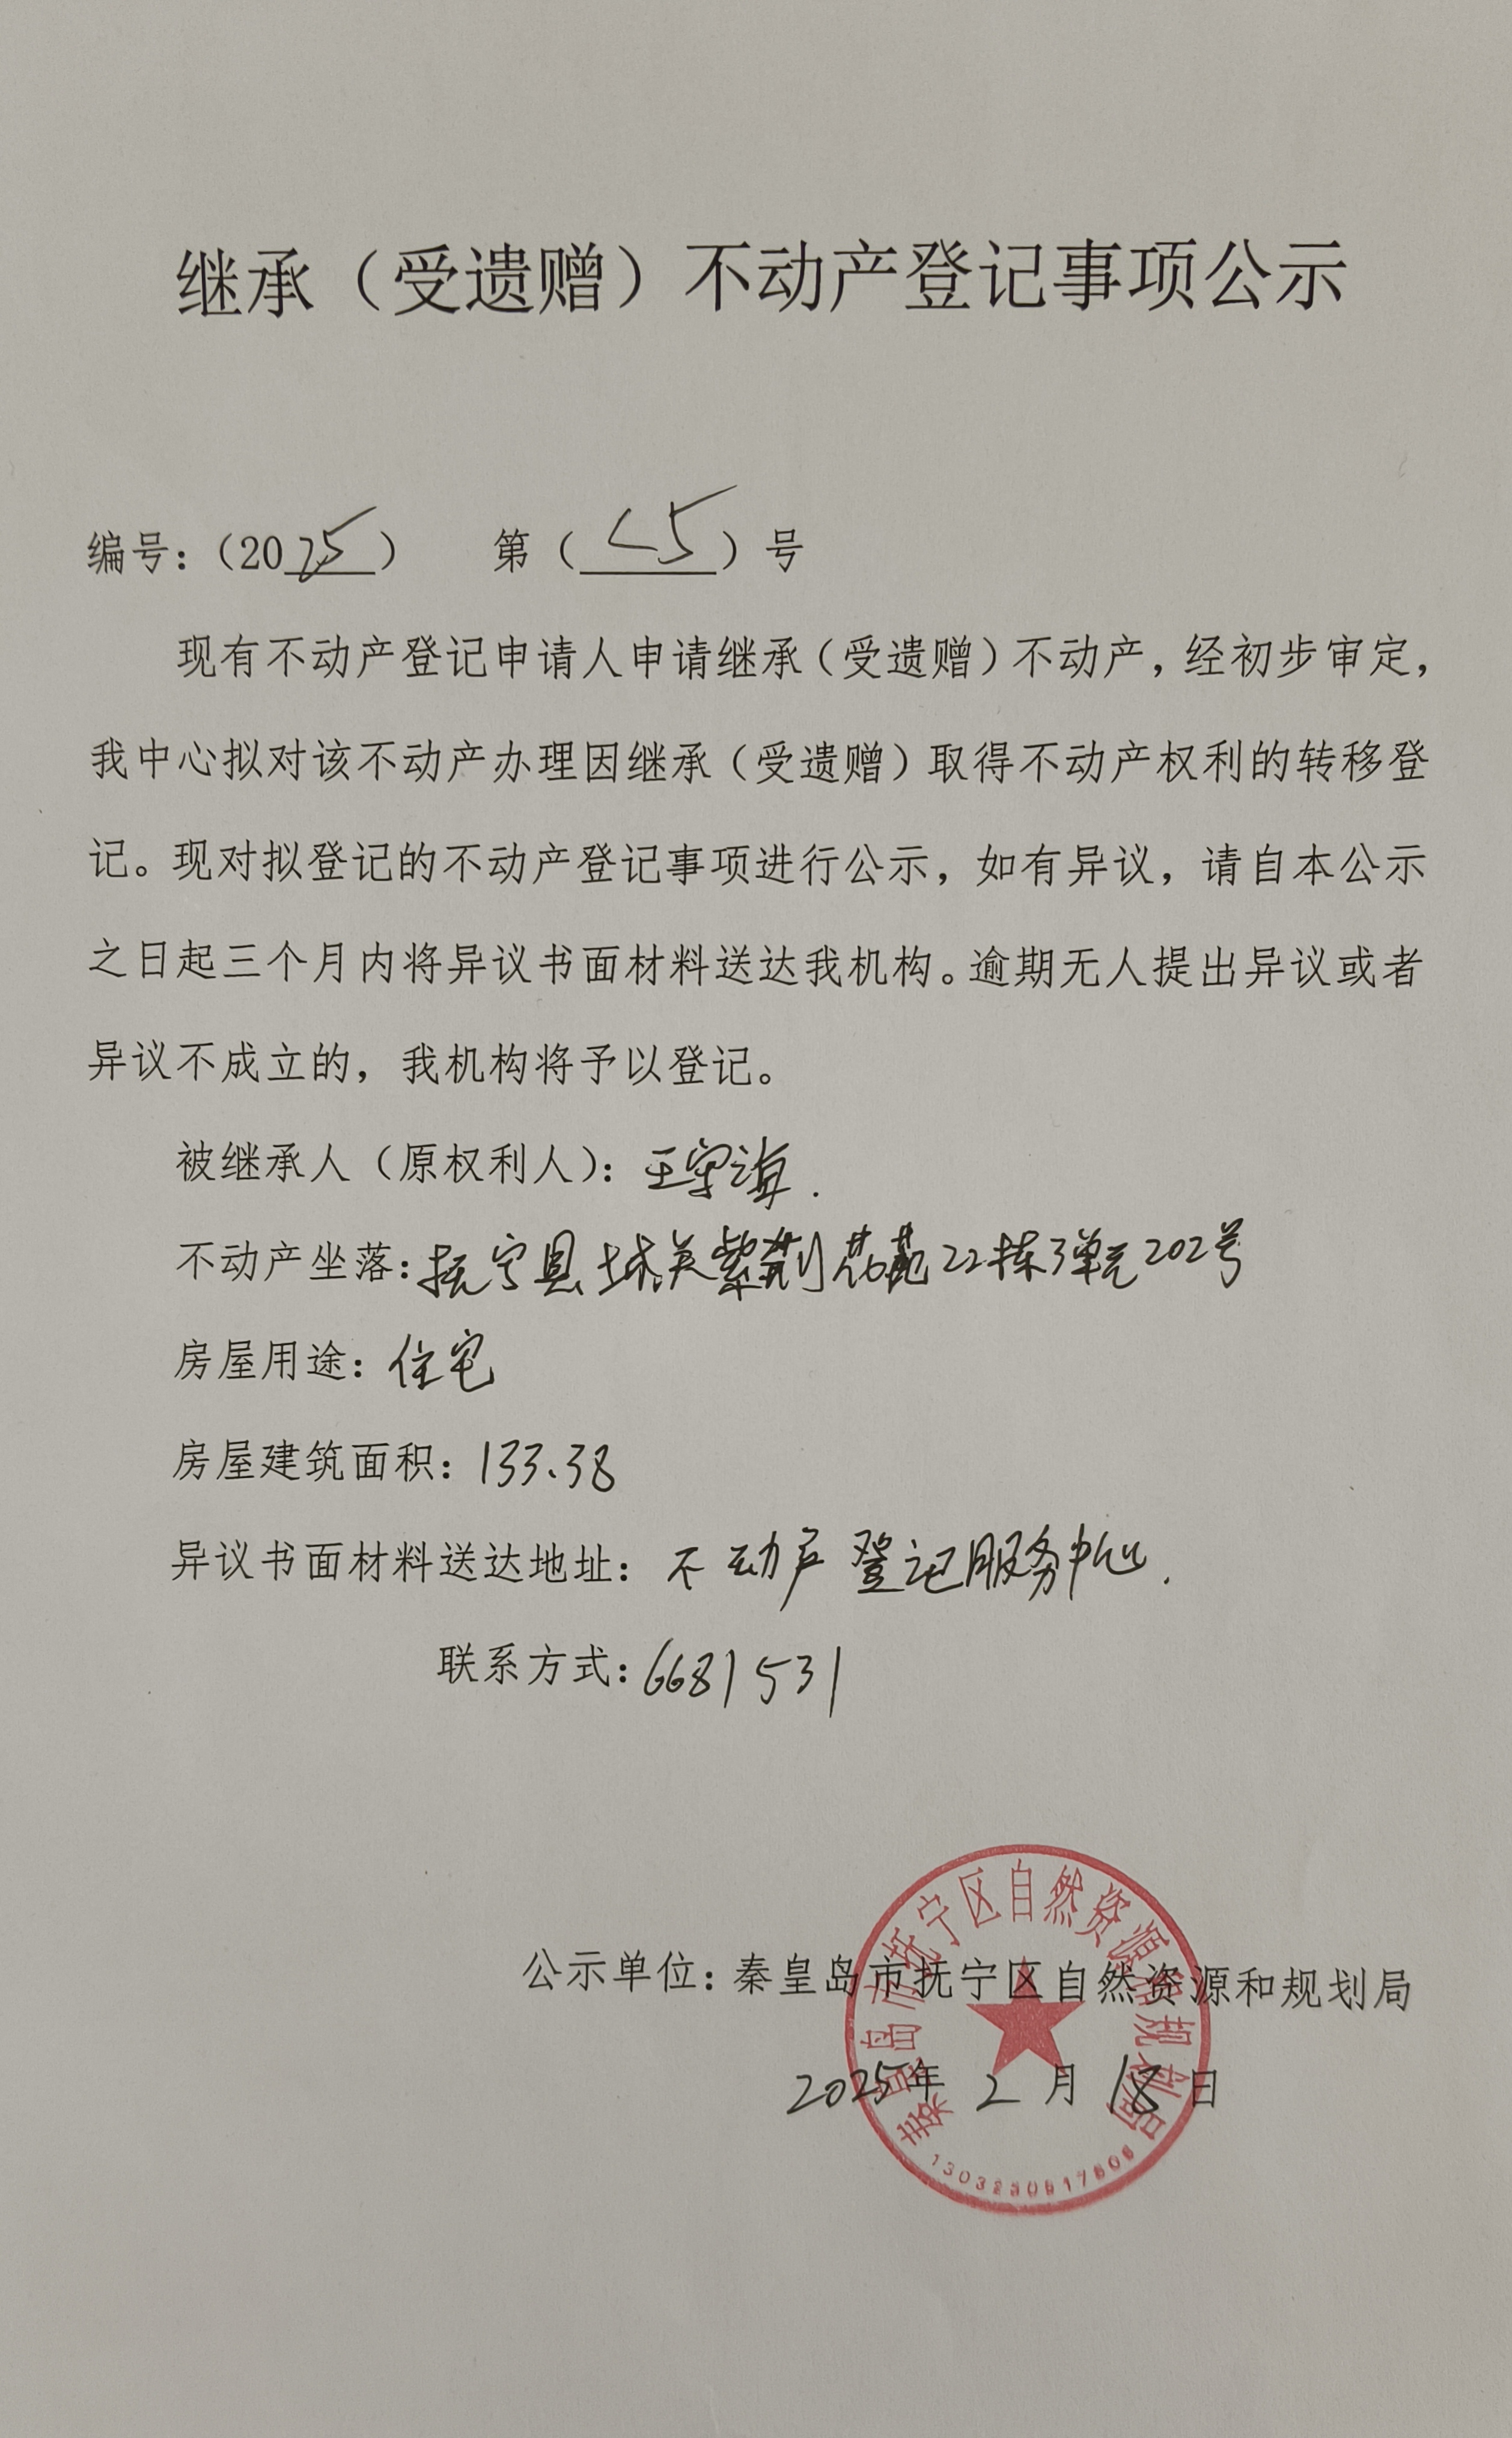 继承（受遗赠）不动产登记事项公示
编号：（2025） 第（25）号
现有不动产登记申请人申请继承（受遗赠）不动产，经初步审定，
我中心拟对该不动产办理因继承（受遗赠）取得不动产权利的转移登
记。现对拟登记的不动产登记事项进行公示，如有异议，请自本公示
之日起三个月内将异议书面材料送达我机构。逾期无人提出异议或者
异议不成立的，我机构将予以登记。
被继承人（原权利人）：王守海.
不动产坐落：抚宁县城关紫荆花苑22栋3单元202号
房屋用途：住宅
房屋建筑面积：133.38
异议书面材料送达地址：不动产登记服务中心.
联系方式：6681531
公示单位：秦皇岛市抚宁区自然资源和规划局
2025年2月18日
秦皇岛市抚宁区自然资源和规划局